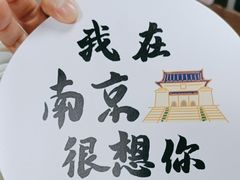 我在
南京
很想你